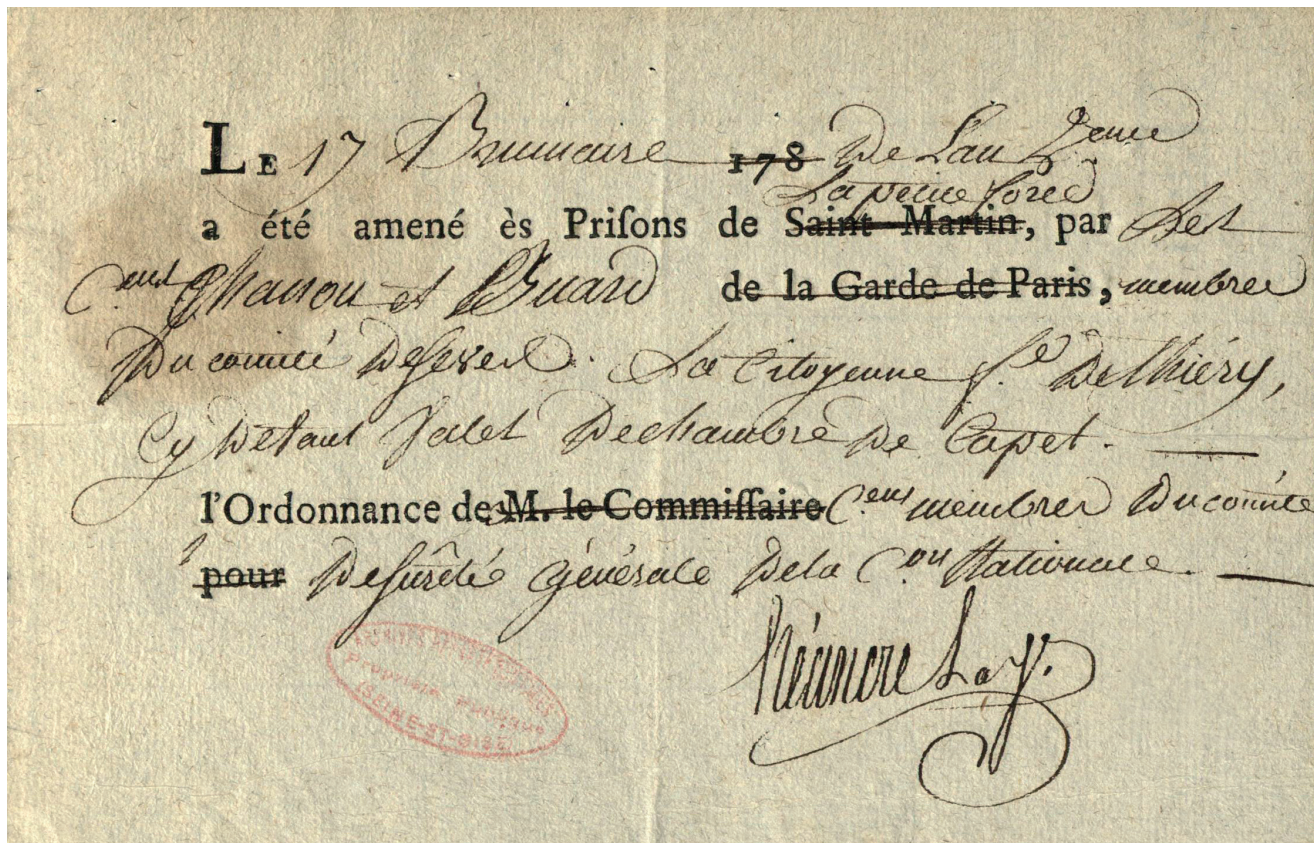 LE 17 Brumaire 178 De L'an 2eme
La petite force
a été amené ès Priſons de Saint Martin, par Les
C.ens Chanou et Huard de la Garde de Paris, membres
Du comité De Sevres. La Citoyenne f.e De Thiéry,
Cy Devant Valet De chambre De Capet.
l'Ordonnance de M. le Commiſſaire C.ens membres Du comité
pour De Sûreté Générale De la C.on Nationale.
SEINE-ET-OISE